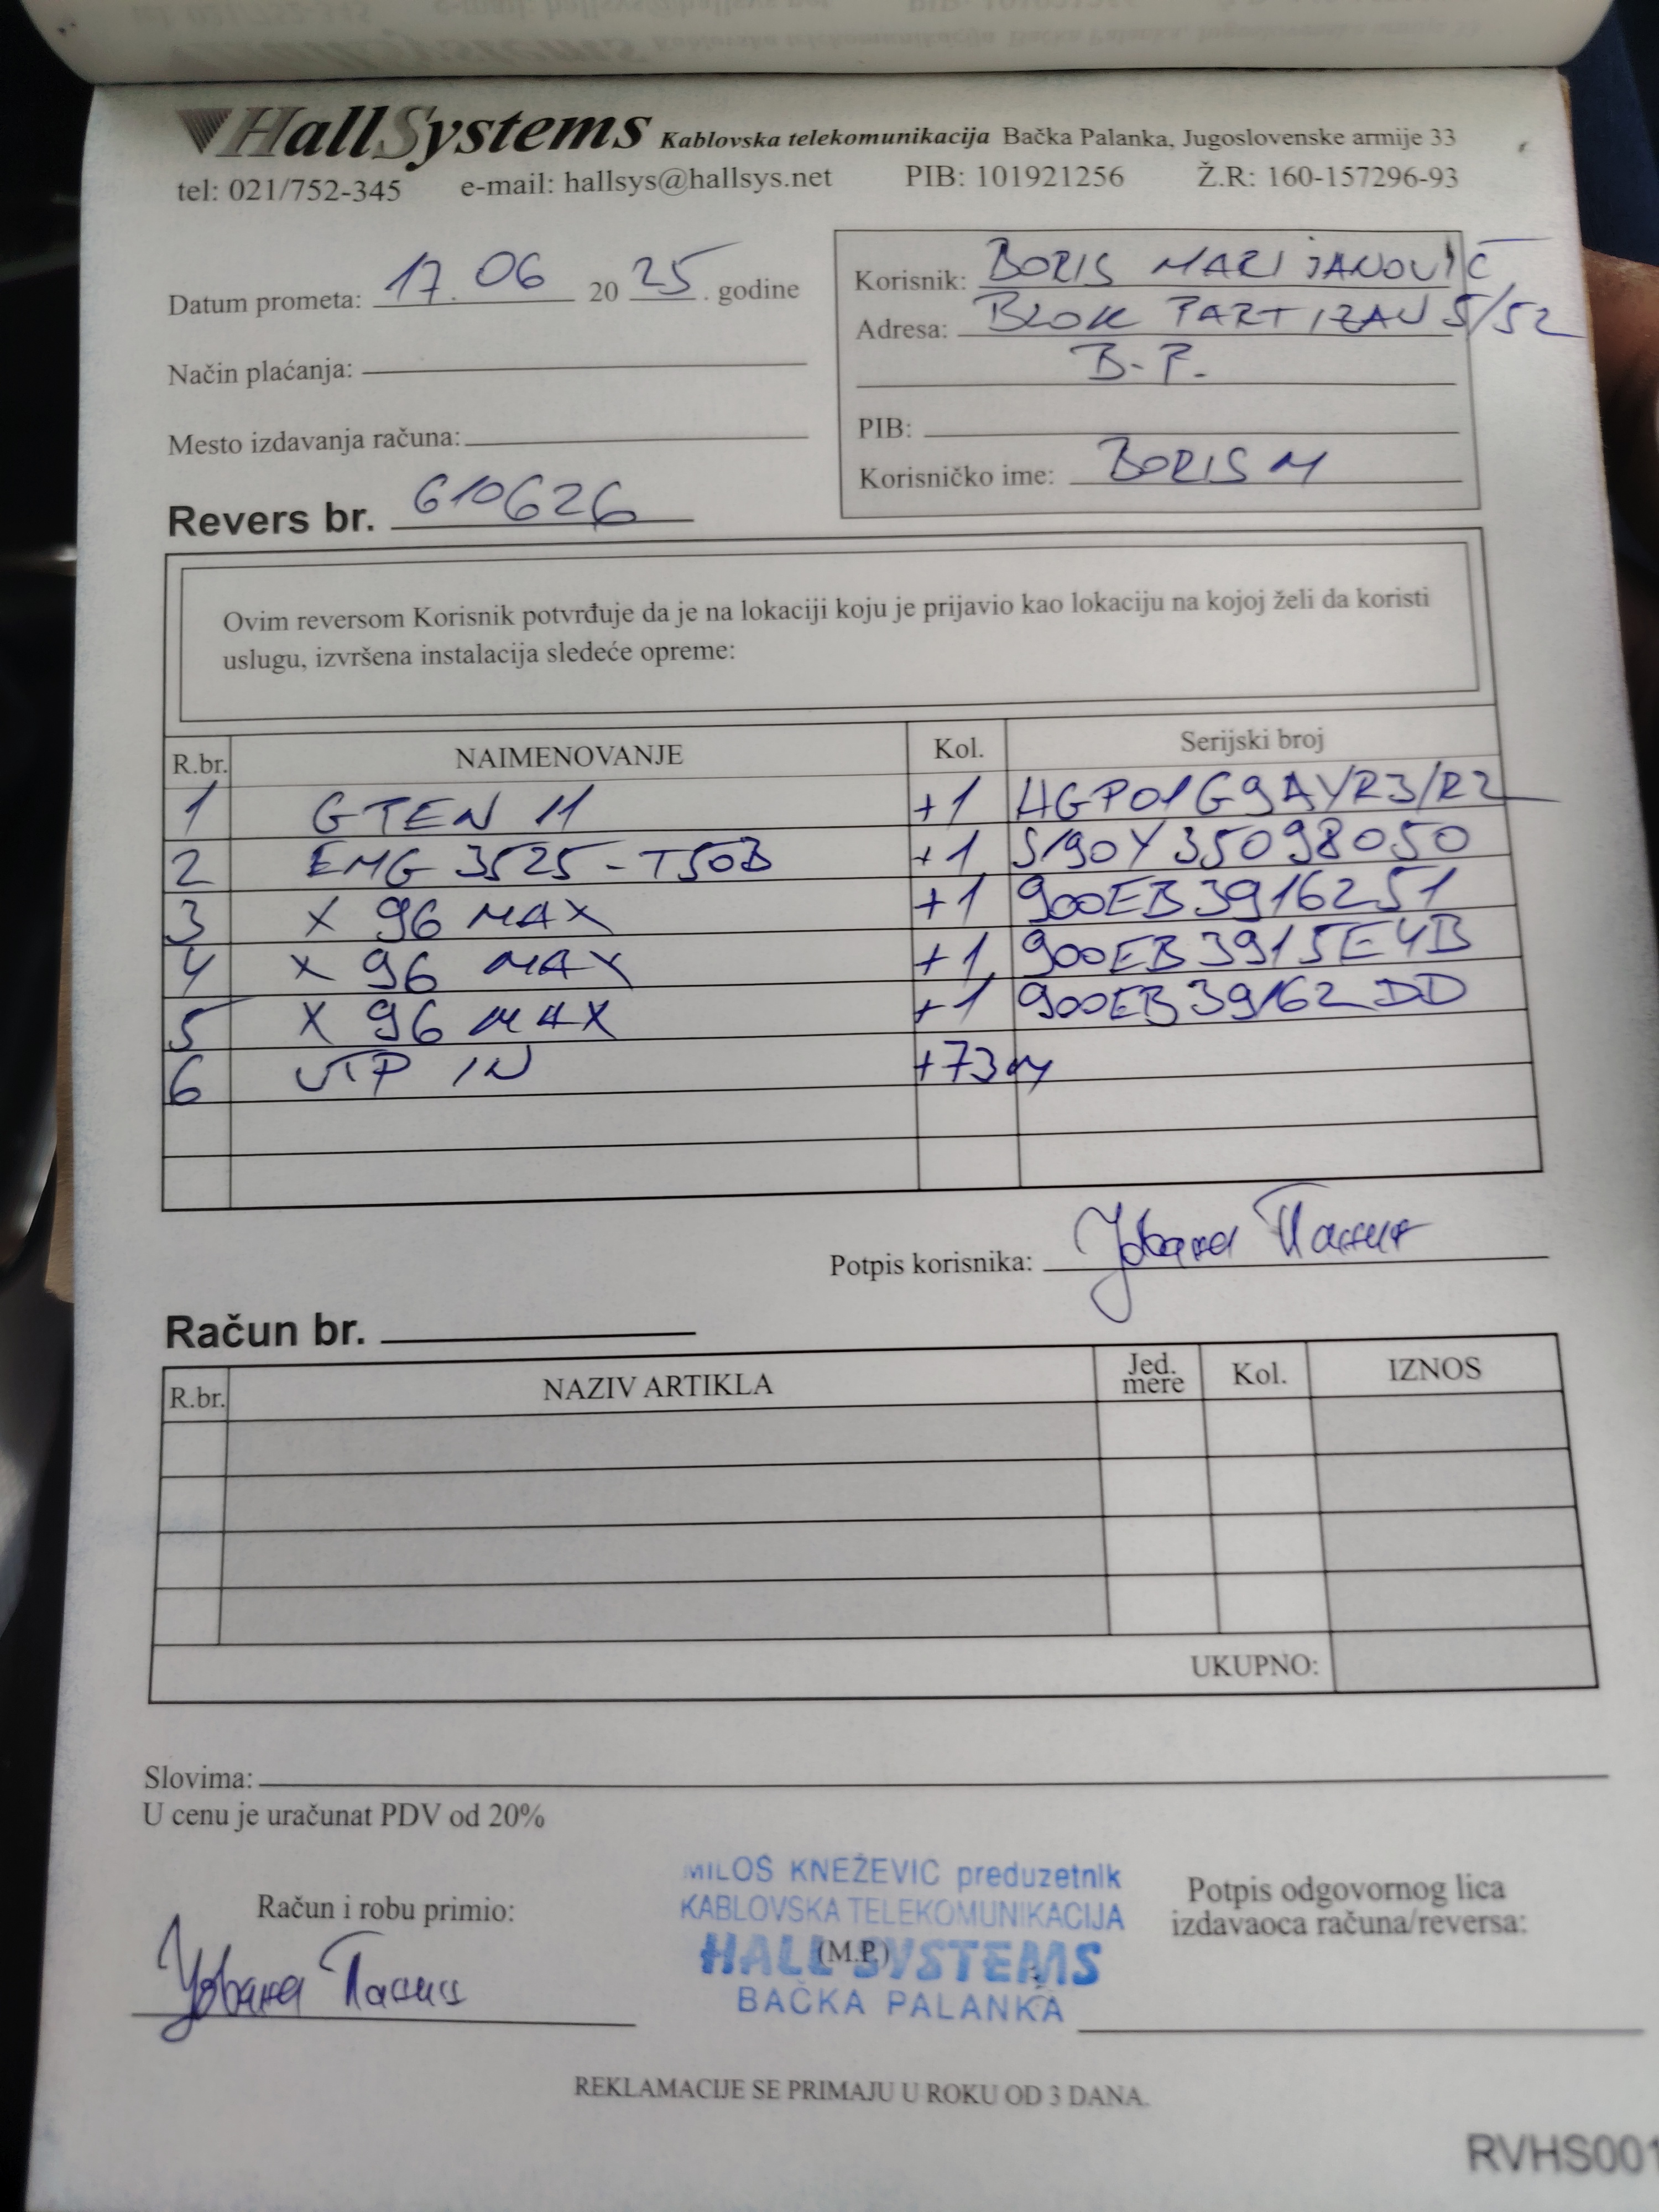 HallSystems Kablovska telekomunikacija Bačka Palanka, Jugoslovenske armije 33
tel: 021/752-345 e-mail: hallsys@hallsys.net PIB: 101921256 Ž.R: 160-157296-93
Datum prometa: 17. 06 20 25. godine
Način plaćanja:
Mesto izdavanja računa:
Revers br. 610626
Korisnik: BORIS MARIJANOVIĆ
Adresa: BLOK PARTIZAN 5/52
B.P.
PIB:
Korisničko ime: BORISM
Ovim reversom Korisnik potvrđuje da je na lokaciji koju je prijavio kao lokaciju na kojoj želi da koristi
uslugu, izvršena instalacija sledeće opreme:
R.br. NAIMENOVANJE Kol. Serijski broj
1 GTEN 11 +1 HGP01G9AYR3/R2
2 EMG 3525-T50B +1 S190Y35098050
3 X 96 MAX +1 900EB3916251
4 X 96 MAX +1 900EB3915E4B
5 X 96 MAX +1 900EB39162DD
6 UTP IN +73m
Potpis korisnika: Јована
Račun br.
R.br. NAZIV ARTIKLA Jed. mere Kol. IZNOS
UKUPNO:
Slovima:
U cenu je uračunat PDV od 20%
Račun i robu primio:
Јована
MILOŠ KNEŽEVIĆ preduzetnik
KABLOVSKA TELEKOMUNIKACIJA
(M.P.)
HALL SYSTEMS
BAČKA PALANKA
Potpis odgovornog lica
izdavaoca računa/reversa:
REKLAMACIJE SE PRIMAJU U ROKU OD 3 DANA.
RVHS001